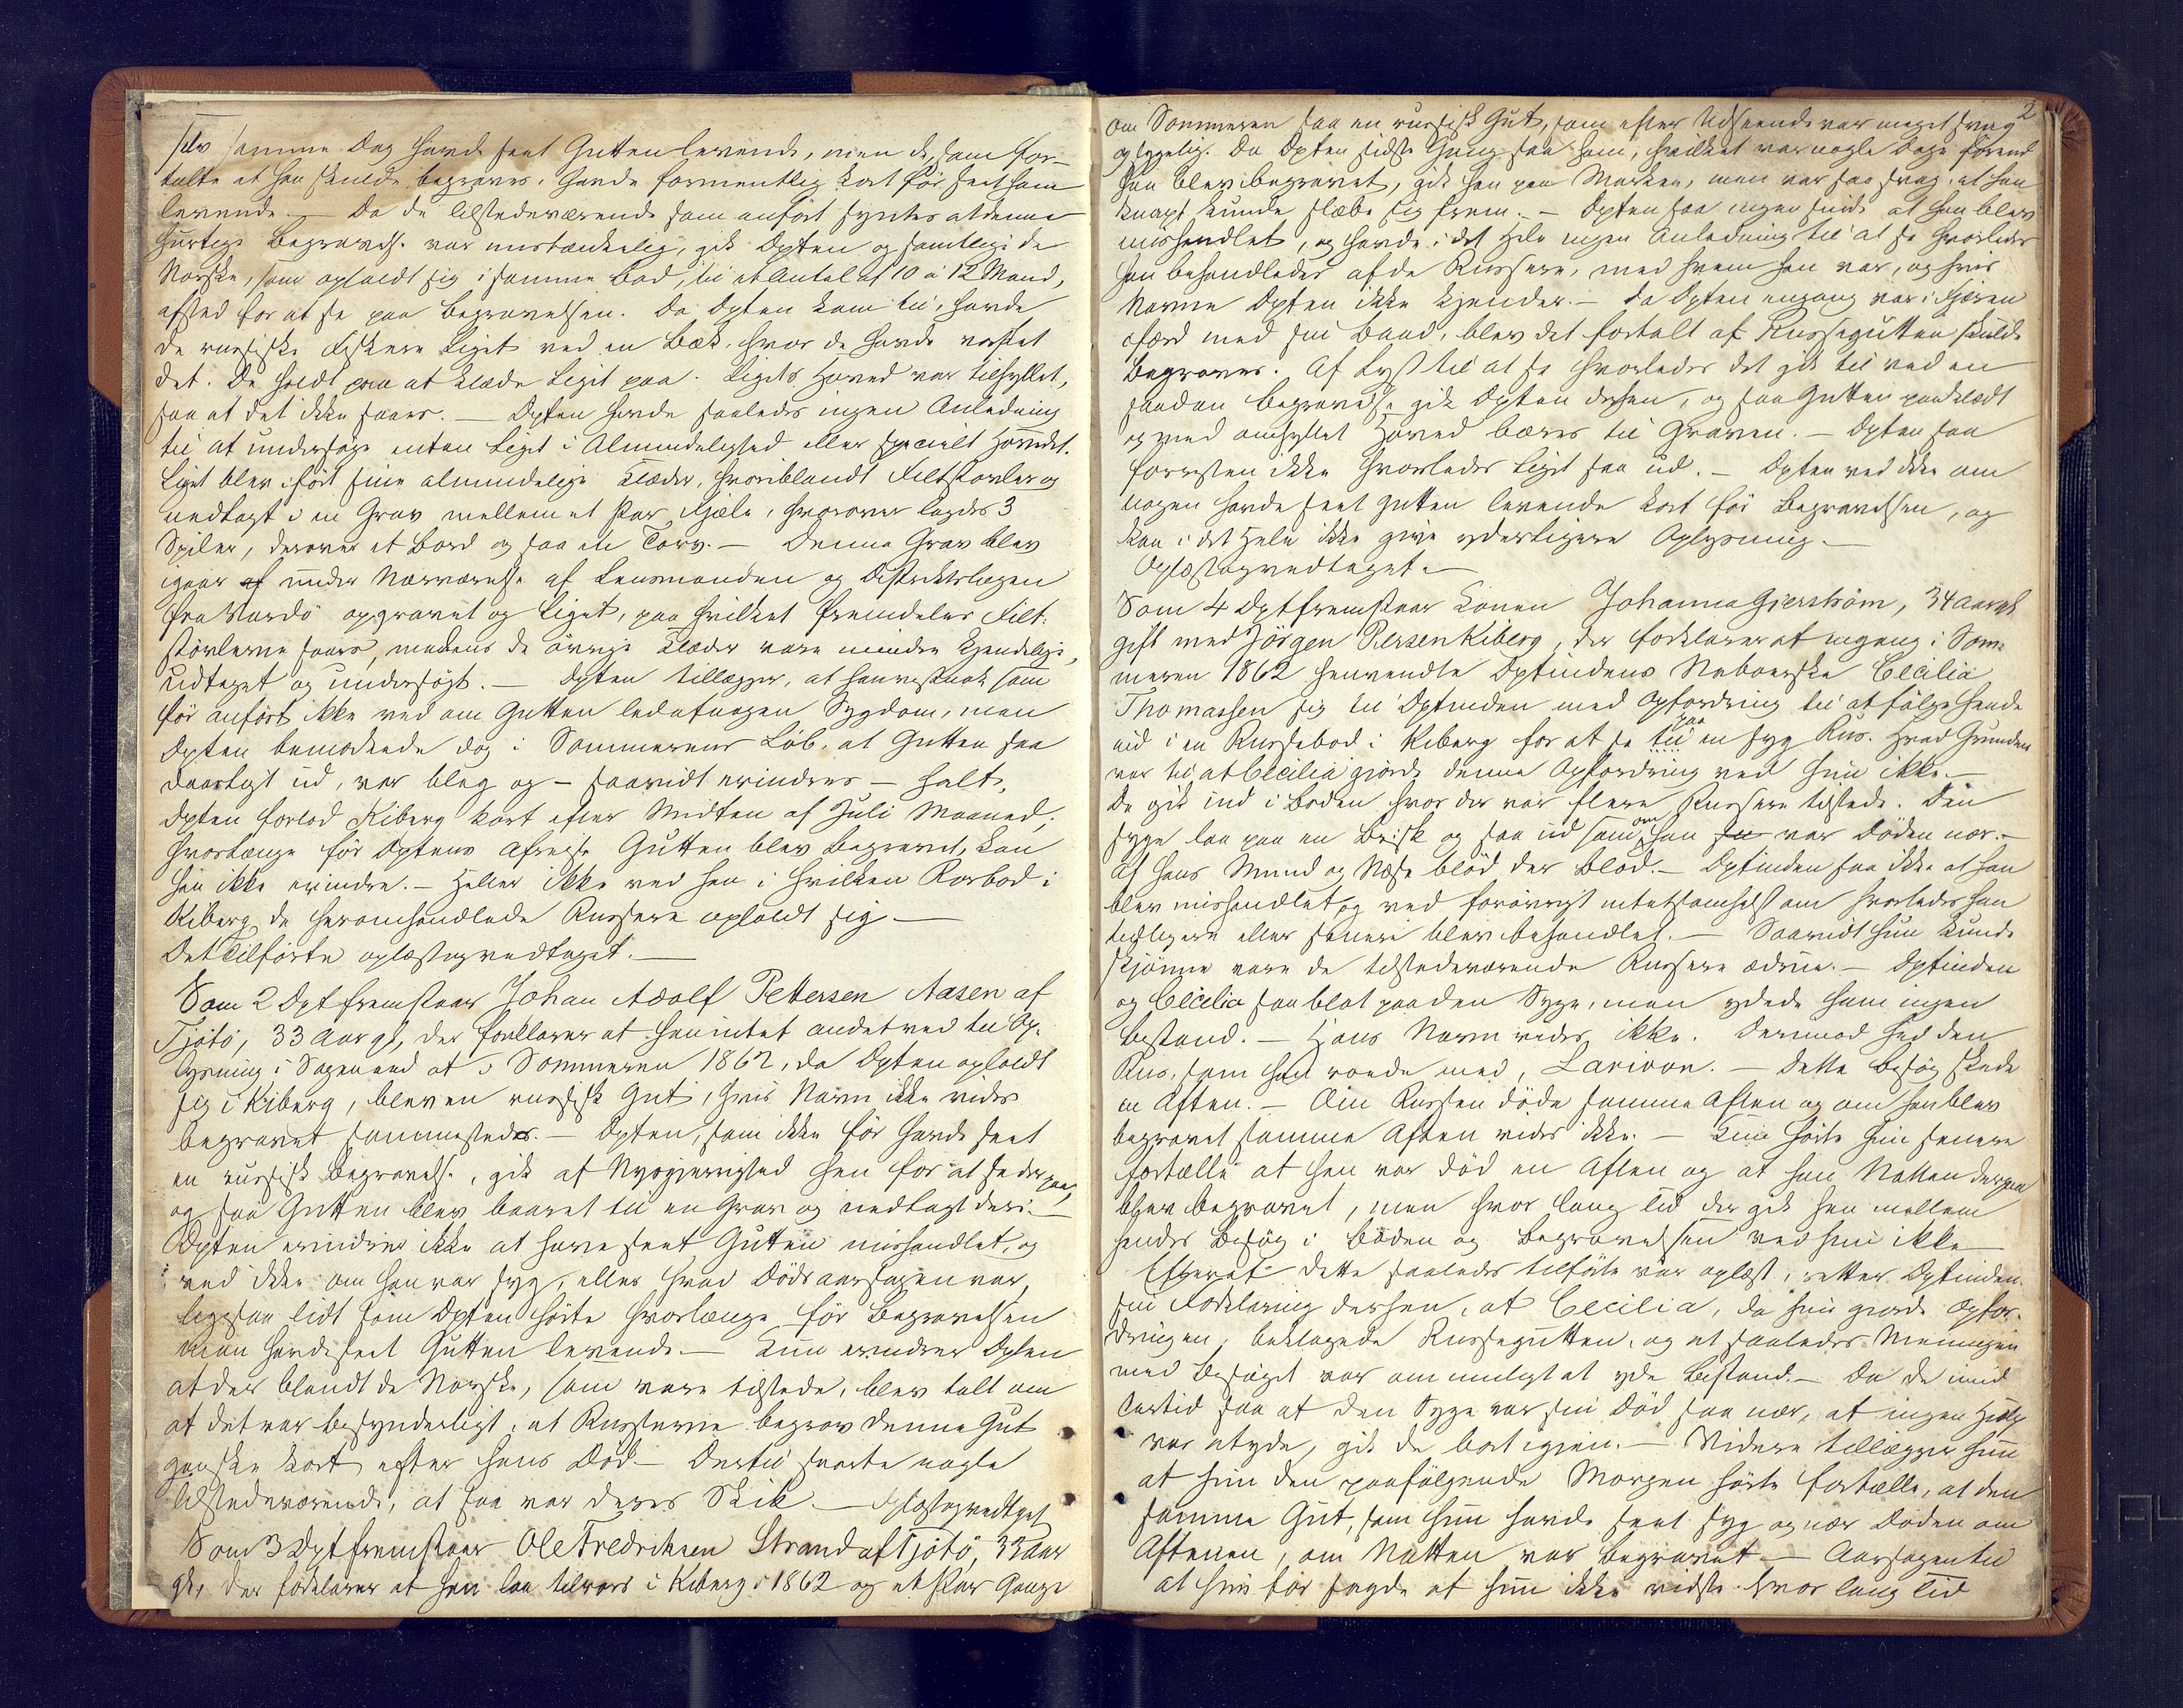 selv samme Dag havde seet Gutten levende, men de, som for-
talte at han skulde begraves, havde formentlig kort før seet ham
levende. — Da de Tilstedeværende som anført syntes at denne
hurtige Begravelse var mistænkelig, gik Dpten og samtlige de
Norske, som opholdt sig i samme Bod, til et Antal af 10 a 12 Mand,
afsted for at se paa Begravelsen. Da Dpten kom til, havde
de russiske Fiskere Liget ved en Bæk, hvor de havde vasket
det. De holdt paa at klæde Liget paa. Ligets Hoved var tilhyllet,
saa at det ikke saaes. — Dpten havde saaledes ingen Anledning
til at undersøge enten Liget i Almindelighed eller specielt Hovedet.
Liget blev iført sine almindelige Klæder, hvoriblandt Filtstøvler og
nedlagt i en Grav mellem et Par Fjæle, hvorover lagdes 3
Spiler, derover et Bord og saa en Torv. — Denne Grav blev
igaar af under Nærværelse af Lensmanden og Distriktslægen
fra Vardø opgravet og Liget, paa hvilket fremdeles Filt-
støvlerne saaes, medens de øvrige Klæder vare mindre kjendelige,
udtaget og undersøgt. — Dpten tillægger, at han vistnok som
før anført ikke ved om Gutten led af nogen Sygdom, men
Dpten bemærkede dog i Sommerens Løb, at Gutten saa
daarligt ud, var bleg og – saavidt erindres – halt.
Dpten forlod Kiberg kort efter Midten af Juli Maaned;
hvorlænge før Dptens Afreise Gutten blev begravet, kan
han ikke erindre. — Heller ikke ved han i hvilken Rorbod i
Kiberg de heromhandlede Russere opholdt sig —
Det Tilførte oplæst og vedtaget. —
Som 2 Dpt fremstaar Johan Adolf Pettersen Aasen af
Tjøtø, 33 Aar gl, der forklarer at han intet andet ved til Op-
lysning i Sagen end at i Sommeren 1862, da Dpten opholdt
sig i Kiberg, blev en russisk Gut, hvis Navn ikke vides
begravet sammesteds. — Dpten, som ikke før havde seet
en russisk Begravelse, gik af Nysgjerrighed hen for at se derpaa,
og saa Gutten blev baaret til en Grav og nedlagt deri. —
Dpten erindrer ikke at have seet Gutten mishandlet, og
ved ikke om han var syg, eller hvad Dødsaarsagen var,
ligesaa lidt som Dpten hørte hvorlænge før Begravelsen
man havde seet Gutten levende. — Kun erindrer Dpten
at der blandt de Norske, som vare tilstede, blev talt om
at det var besynderligt, at Russerne begrov denne Gut
ganske kort efter hans Død. — Dertil svarte nogle
Tilstedeværende, at saa var deres Skik. — Oplæst og vedtaget
Som 3 Dpt fremstaar Ole Fredriksen Strand af Tjøtø, 33 Aar
gl, der forklarer at han laa tilrors i Kiberg i 1862 og et Par Gange
2
om Sommeren saa en russisk Gut, som efter Udseende var meget svag
og sygelig. Da Dpten sidste Gang saa ham, hvilket var nogle Dage førend
han blev begravet, gik han paa Marken, men var saa svag, at han
knapt kunde slæbe sig frem. — Dpten saa ingensinde at han blev
mishandlet, og havde i det Hele ingen Anledning til at se hvorledes
han behandledes af de Russere, med hvem han var, og hvis
Navne Dpten ikke kjender. — Da Dpten engang var i Fjæren
ifærd med sin Baad, blev det fortalt at Russegutten skulde
begraves. Af Lyst til at se hvorledes det gik til ved en
saadan Begravelse gik Dpten derhen, og saa Gutten paaklædt
og med omhyllet Hoved bæres til Graven. — Dpten saa
forresten ikke hvorledes Liget saa ud. — Dpten ved ikke om
nogen havde seet Gutten levende kort før Begravelsen, og
kan i det Hele ikke give yderligere Oplysning. —
Oplæst og vedtaget. —
Som 4 Dpt fremstaar Konen Johanna Gjerstrøm, 34 Aar gl
gift med Jørgen Persen Kiberg, der forklarer at engang i Som-
meren 1862 henvendte Dptindens Naboerske Cecilia
Thomassen sig til Dptinden med Opfordring til at følge hende
ud i en Russebod i Kiberg for at se til paa en syg Rus. Hvad Grunden
var til at Cecilia gjorde denne Opfordring ved hun ikke. —
De gik ind i Boden hvor der var flere Russere tilstede. Den
syge laa paa en Brisk og saa ud som om han var Døden nær. —
Af hans Mund og Næse blød der Blod. — Dptinden saa ikke at han
blev mishandlet og ved forøvrigt intetsomhelst om hvorledes han
tidligere eller senere blev behandlet. — Saavidt hun kunde
skjønne vare de tilstedeværende Russere ædrue. — Dptinden
og Cecilia saa blot paa den Syge, men ydede ham ingen
Bistand. — Hans Navn vides ikke. Derimod hed den
Rus, som han roede med, Larivon. — Dette Besøg skede
en Aften. — Om Russen døde samme Aften og om han blev
begravet samme Aften vides ikke. — Kun hørte hun senere
fortælle at han var død en Aften og at han Natten derpaa
blev begravet, men hvor lang Tid der gik hen mellem
hendes Besøg i Boden og Begravelsen ved hun ikke
Efterat dette saaledes tilførte var oplæst, retter Dptinden
sin Forklaring derhen, at Cecilia, da hun gjorde Opfor-
dringen, beklagede Russegutten, og at saaledes Meningen
med Besøget var om muligt at yde Bistand. — Da de imid-
lertid saa at den Syge var sin Død saa nær, at ingen Hjælp
var at yde, gik de bort igjen. — Videre tillægger hun
at hun den paafølgende Morgen hørte fortælle, at den
samme Gut, som hun havde seet syg og nær Døden om
Aftenen, om Natten var begravet — Aarsagen til
at hun før sagde at hun ikke vidste hvor lang Tid